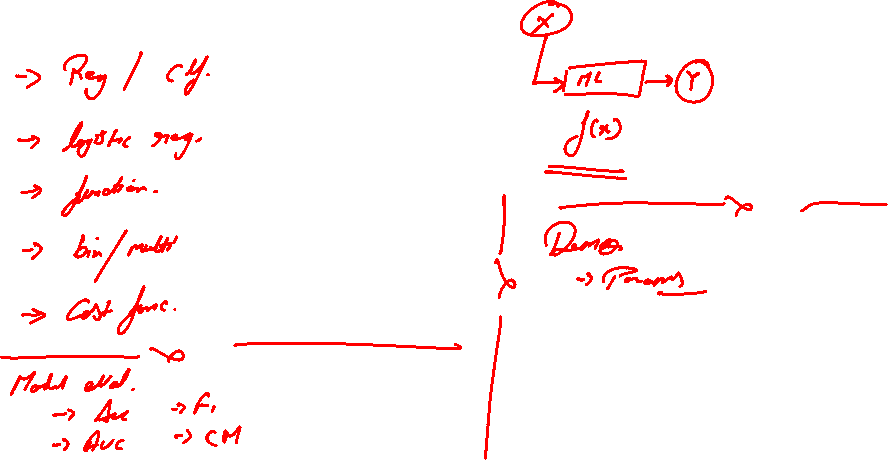 → Reg / Clf.
→ logistic reg.
→ function.
→ bin/multi
→ Cost func.
Model eval.
→ Acc → F1
→ AUC → CM
X
ML → Y
f(x)
Demo.
→ Params